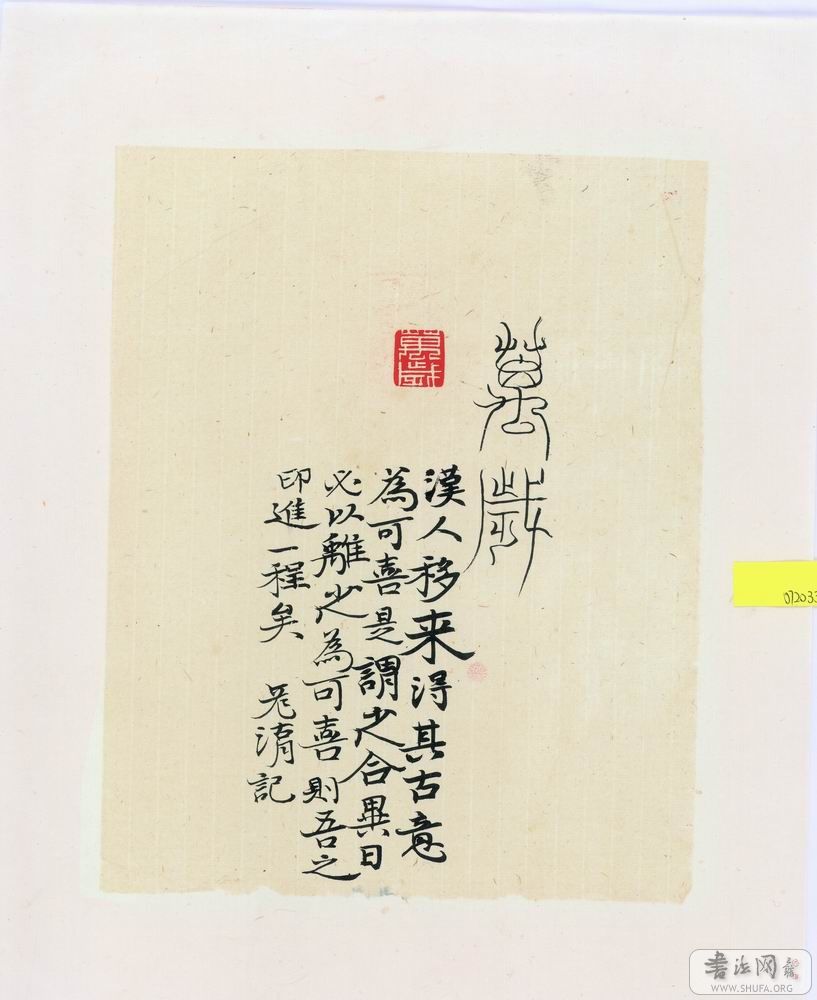 萬歲
萬歲
漢人移来得其古意
為可喜是謂之合異日
必以離之為可喜則吾之
印進一程矣 記
072033
書法网
WWW.SHUFA.ORG